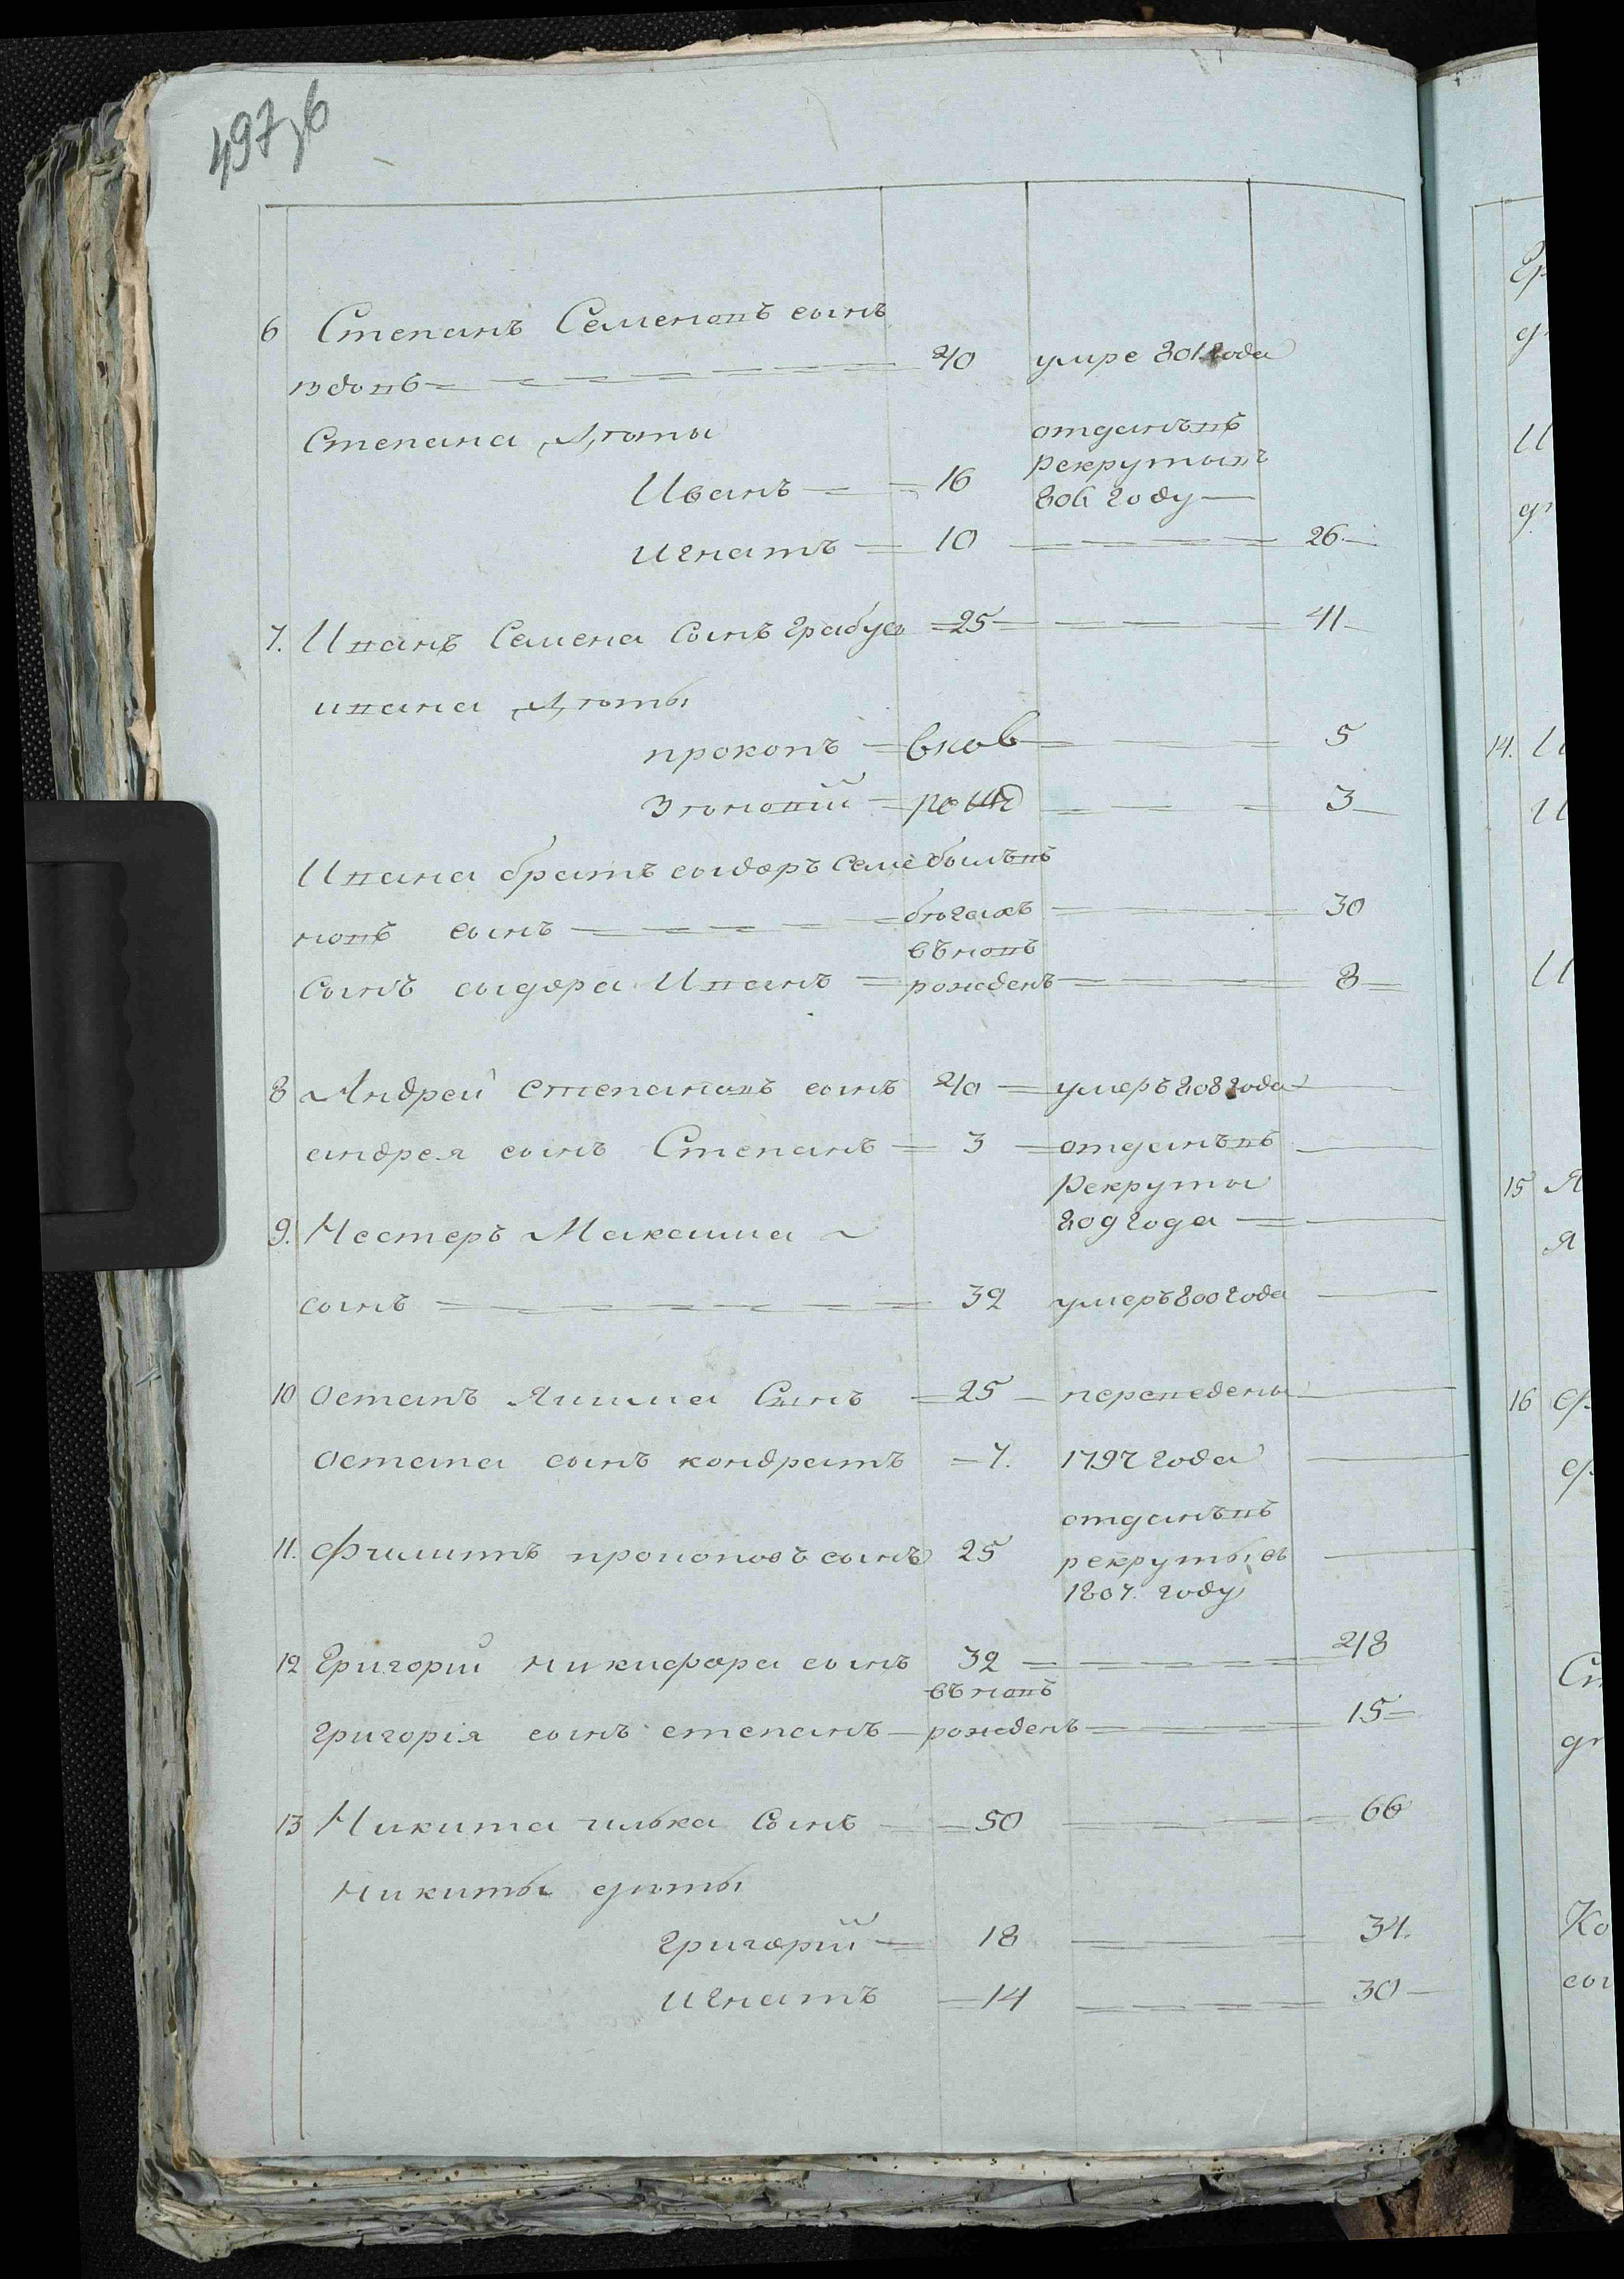 497 об
6 Степанъ Семеновъ сынъ
вдовъ 40 умре 801 года
Степана дѣти отданъ въ
рекруты въ
Иванъ 16 806 году
Игнатъ 10 26
7. Иванъ Семена сынъ грабуа 25 41
ивана дѣты
прокопъ внов 5
рожд 3
Ивана братъ сыдоръ Семе былъ въ
новъ сынъ бѣгахъ 30
въ новъ
Сынъ сыдора Иванъ рожденъ 8
8 Андрей степановъ сынъ 40 умеръ 808 года
андрея сынъ Степанъ 3 отданъ въ
рекруты
9. Нестеръ Максима 809 года
сынъ 32 умеръ 800 года
10 Остапъ Якима Сынъ 25 переведены
остапа сынъ кондратъ 7. 1797 года
отданъ въ
11. Филиппъ сынъ 25 рекруты въ
1807. году
12 Григорий никифора сынъ 32 48
въ новъ
григорія сынъ степанъ рожденъ 15
13 Никита илька Сынъ 50 66
Никиты дѣты
григорий 18 34.
игнатъ 14 30
14.
15 Я
Я
16